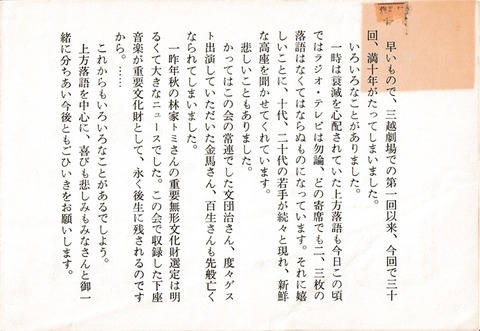 早いもので、三越劇場での第一回以来、今回で三十
回、満十年がたってしまいました。
いろいろなことがありました。
一時は衰滅を心配されていた上方落語も今日この頃
ではラジオ・テレビは勿論、どの寄席でも二、三枚の
落語はなくてはならぬものになっています。それに嬉
しいことに、十代、二十代の若手が続々と現れ、新鮮
な高座を聞かせてくれています。
悲しいこともありました。
かつてはこの会の常連でした文団治さん、度々ゲス
ト出演していただいた金馬さん、百生さんも先般亡く
なられてしまいました。
一昨年秋の林家トミさんの重要無形文化財選定は明
るくて大きなニュースでした。この会で収録した下座
音楽が重要文化財として、永く後生に残されるのです
から。……
これからもいろいろなことがあるでしょう。
上方落語を中心に、喜びも悲しみもみなさんと御一
緒に分ちあい今後ともごひいきをお願いします。